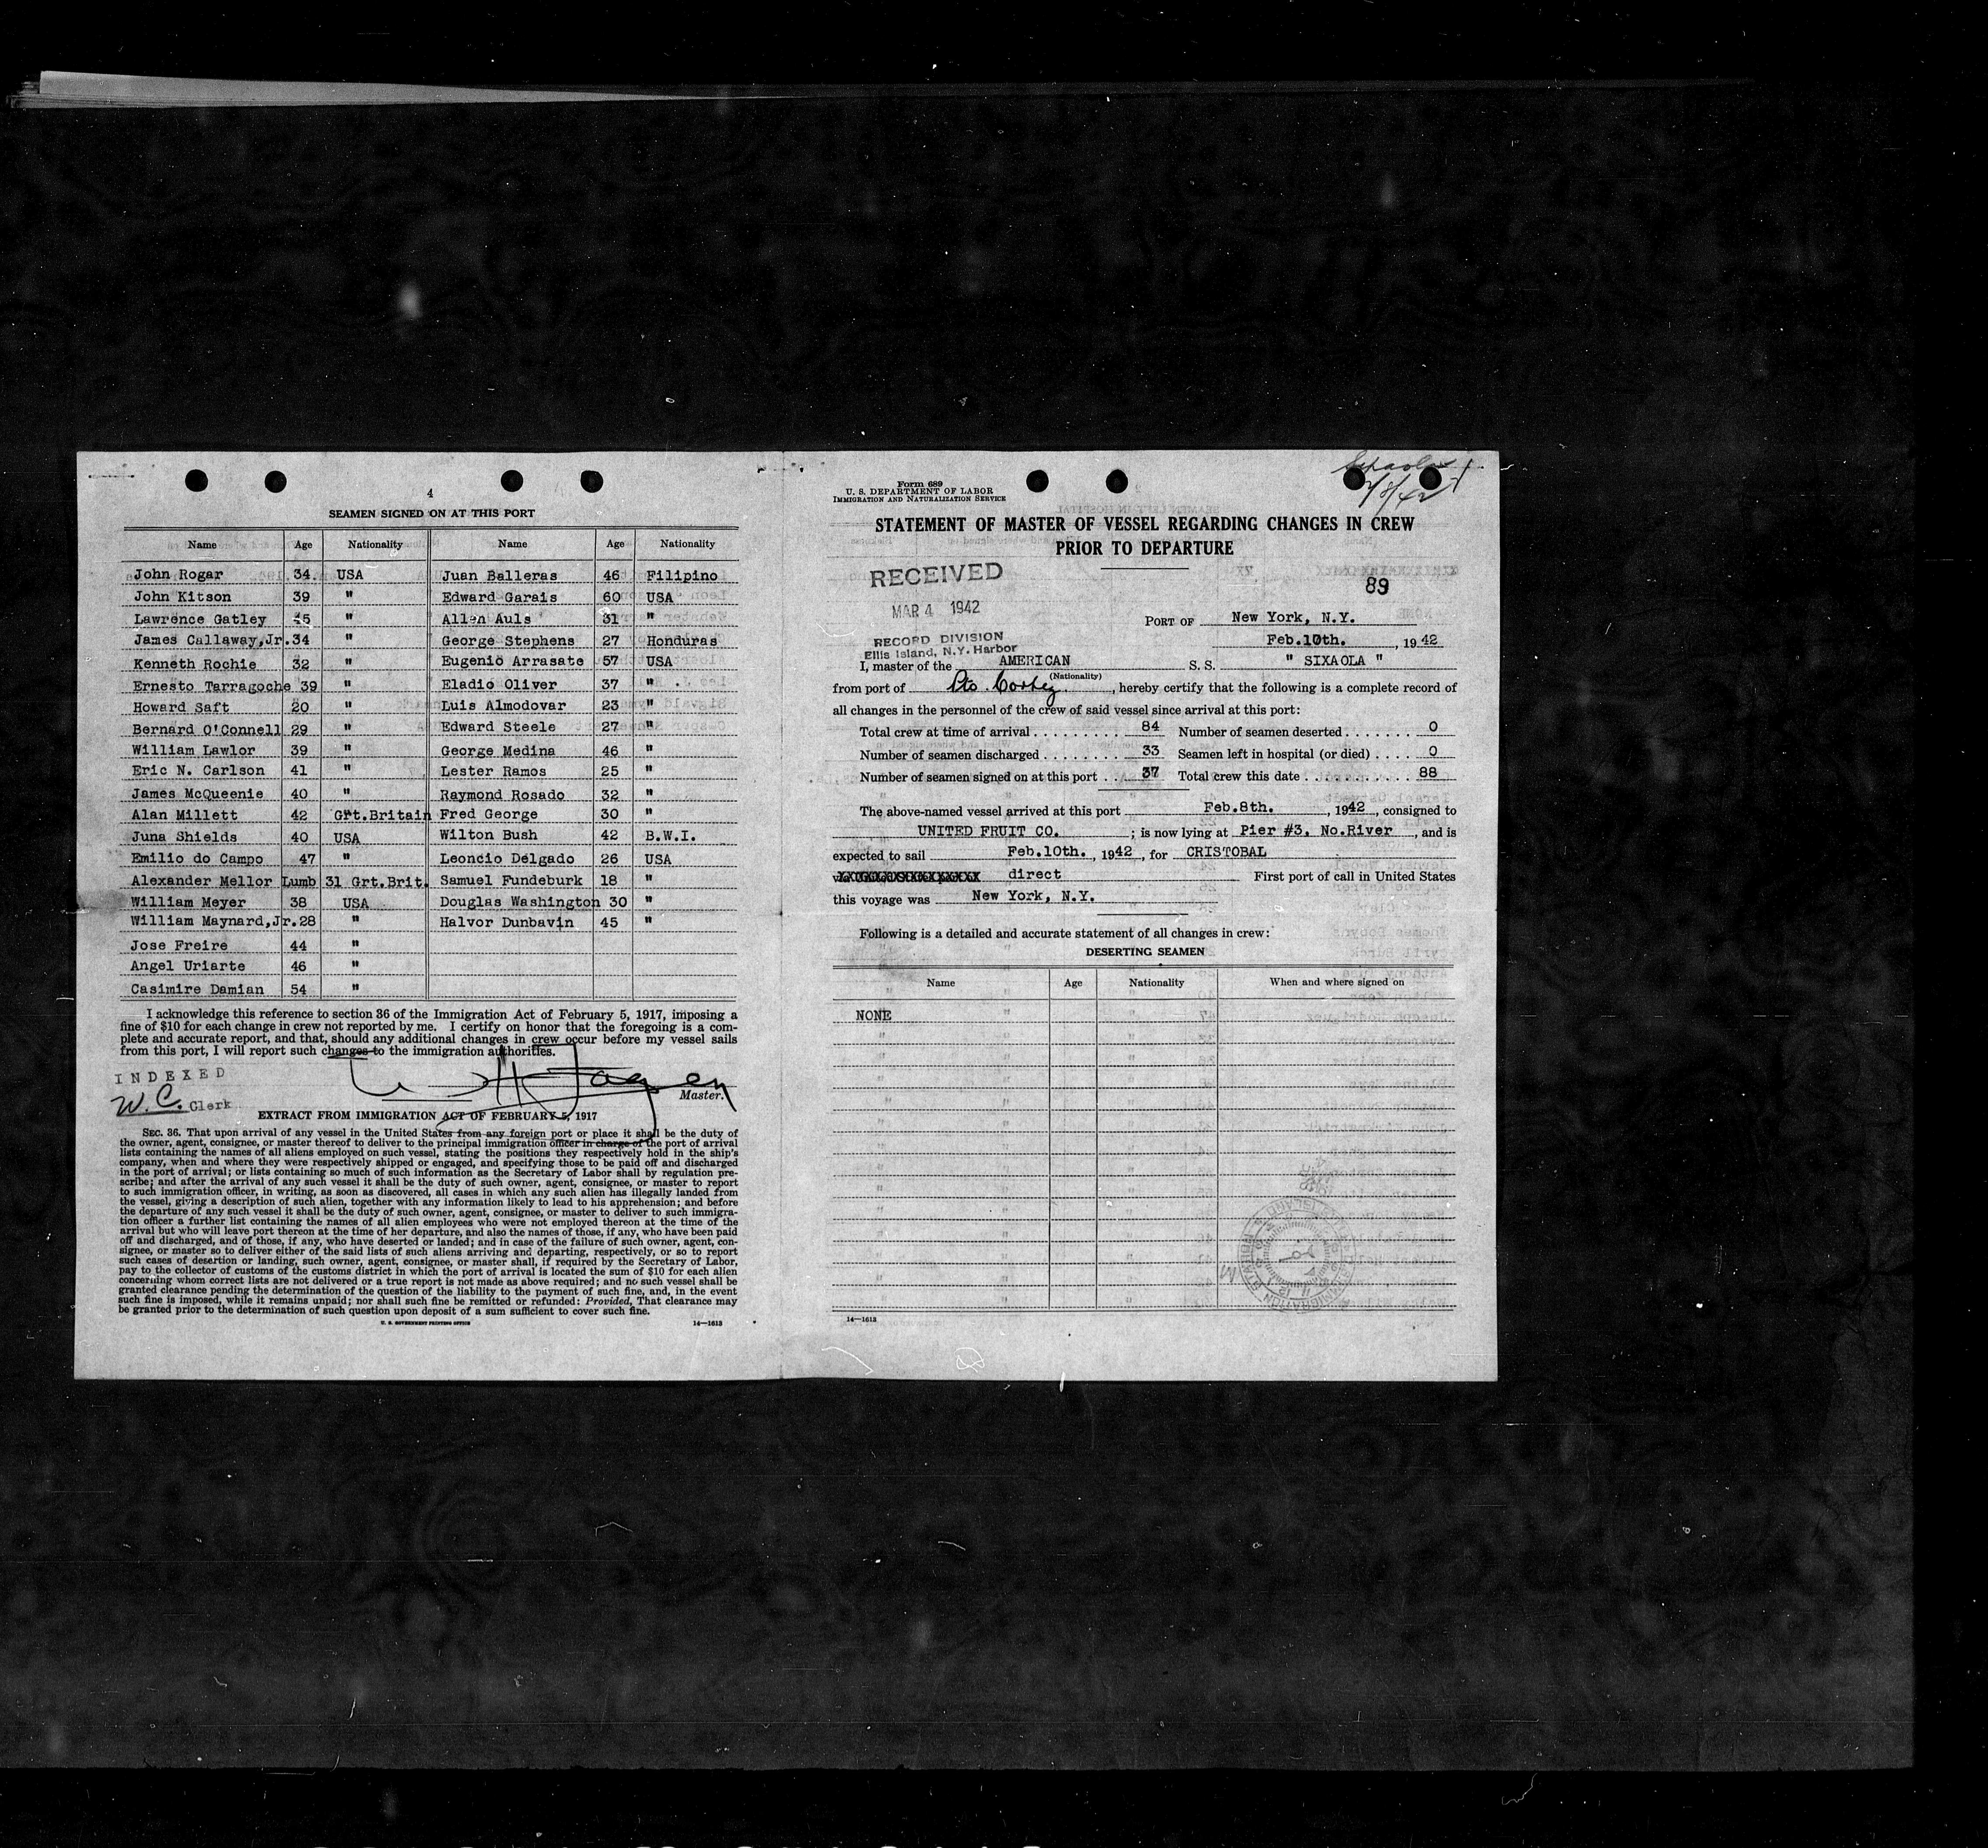 4
SEAMEN SIGNED ON AT THIS PORT
Name Age Nationality Name Age Nationality
John Rogar 34. USA Juan Balleras 46 Filipino
John Kitson 39 " Edward Garais 60 USA
Lawrence Gatley 45 " Allen Auls 31 "
James Callaway,Jr. 34 " George Stephens 27 Honduras
Kenneth Rochie 32 " Eugenio Arrasate 57 USA
Ernesto Tarragoche 39 " Eladio Oliver 37 "
Howard Saft 20 " Luis Almodovar 23 "
Bernard O'Connell 29 " Edward Steele 27 "
William Lawlor 39 " George Medina 46 "
Eric N. Carlson 41 " Lester Ramos 25 "
James McQueenie 40 " Raymond Rosado 32 "
Alan Millett 42 Grt.Britain Fred George 30 "
Juna Shields 40 USA Wilton Bush 42 B.W.I.
Emilio do Campo 47 " Leoncio Delgado 26 USA
Alexander Mellor Lumb 31 Grt.Brit. Samuel Fundeburk 18 "
William Meyer 38 USA Douglas Washington 30 "
William Maynard,Jr. 28 " Halvor Dunbavin 45 "
Jose Freire 44 "
Angel Uriarte 46 "
Casimire Damian 54 "
I acknowledge this reference to section 36 of the Immigration Act of February 5, 1917, imposing a
fine of $10 for each change in crew not reported by me. I certify on honor that the foregoing is a com-
plete and accurate report, and that, should any additional changes in crew occur before my vessel sails
from this port, I will report such changes to the immigration authorities.
INDEXED
W. C. Clerk
Master.
EXTRACT FROM IMMIGRATION ACT OF FEBRUARY 5, 1917
SEC. 36. That upon arrival of any vessel in the United States from any foreign port or place it shall be the duty of
the owner, agent, consignee, or master thereof to deliver to the principal immigration officer in charge of the port of arrival
lists containing the names of all aliens employed on such vessel, stating the positions they respectively hold in the ship's
company, when and where they were respectively shipped or engaged, and specifying those to be paid off and discharged
in the port of arrival; or lists containing so much of such information as the Secretary of Labor shall by regulation pre-
scribe; and after the arrival of any such vessel it shall be the duty of such owner, agent, consignee, or master to report
to such immigration officer, in writing, as soon as discovered, all cases in which any such alien has illegally landed from
the vessel, giving a description of such alien, together with any information likely to lead to his apprehension; and before
the departure of any such vessel it shall be the duty of such owner, agent, consignee, or master to deliver to such immigra-
tion officer a further list containing the names of all alien employees who were not employed thereon at the time of the
arrival but who will leave port thereon at the time of her departure, and also the names of those, if any, who have been paid
off and discharged, and of those, if any, who have deserted or landed; and in case of the failure of such owner, agent, con-
signee, or master so to deliver either of the said lists of such aliens arriving and departing, respectively, or so to report
such cases of desertion or landing, such owner, agent, consignee, or master shall, if required by the Secretary of Labor,
pay to the collector of customs of the customs district in which the port of arrival is located the sum of $10 for each alien
concerning whom correct lists are not delivered or a true report is not made as above required; and no such vessel shall be
granted clearance pending the determination of the question of the liability to the payment of such fine, and, in the event
such fine is imposed, while it remains unpaid; nor shall such fine be remitted or refunded: Provided, That clearance may
be granted prior to the determination of such question upon deposit of a sum sufficient to cover such fine.
U. S. GOVERNMENT PRINTING OFFICE 14—1613
Sixaola
2/8/42
Form 689
U. S. DEPARTMENT OF LABOR
IMMIGRATION AND NATURALIZATION SERVICE
STATEMENT OF MASTER OF VESSEL REGARDING CHANGES IN CREW
PRIOR TO DEPARTURE
RECEIVED
MAR 4 1942
RECORD DIVISION
Ellis Island, N.Y. Harbor
89
PORT OF New York, N.Y.
Feb.10th. , 1942
I, master of the AMERICAN S. S. " SIXAOLA "
(Nationality)
from port of Pto. Cortez , hereby certify that the following is a complete record of
all changes in the personnel of the crew of said vessel since arrival at this port:
Total crew at time of arrival . . . . . . . . . 84 Number of seamen deserted . . . . . . . 0
Number of seamen discharged . . . . . . . . 33 Seamen left in hospital (or died) . . . . 0
Number of seamen signed on at this port . . 37 Total crew this date . . . . . . . . . . 88
The above-named vessel arrived at this port Feb.8th. , 1942 , consigned to
UNITED FRUIT CO. ; is now lying at Pier #3. No.River , and is
expected to sail Feb.10th. , 1942 , for CRISTOBAL
direct First port of call in United States
this voyage was New York, N.Y.
Following is a detailed and accurate statement of all changes in crew:
DESERTING SEAMEN
Name Age Nationality When and where signed on
NONE
14—1613